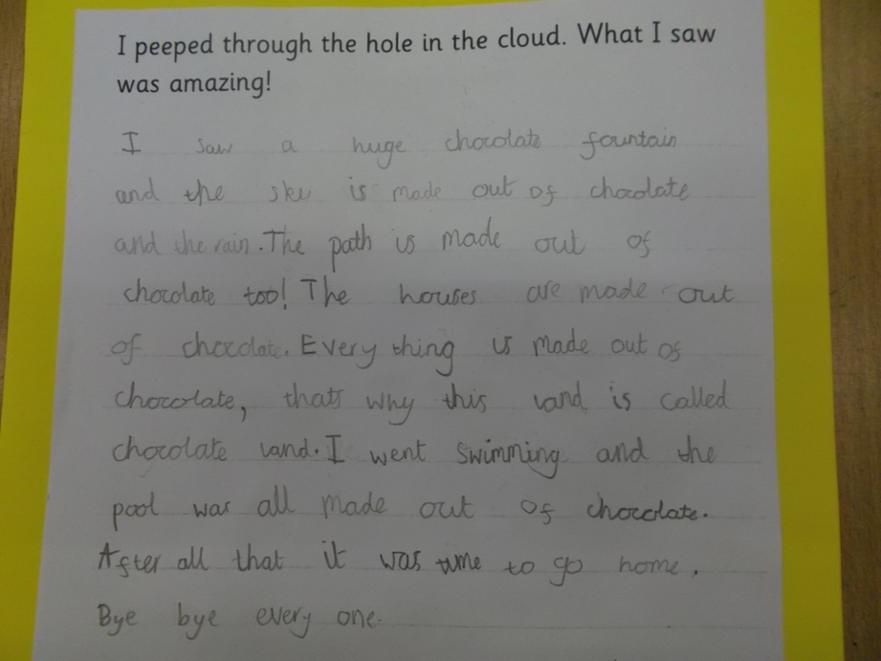 I peeped through the hole in the cloud. What I saw
was amazing!
I saw a huge chocolate fountain
and the sky is made out of chocolate
and the rain. The path is made out of
chocolate too! The houses are made out
of chocolate. Every thing is made out of
chocolate, thats why this land is called
chocolate land. I went swimming and the
pool was all made out of chocolate.
After all that it was time to go home.
Bye bye every one.